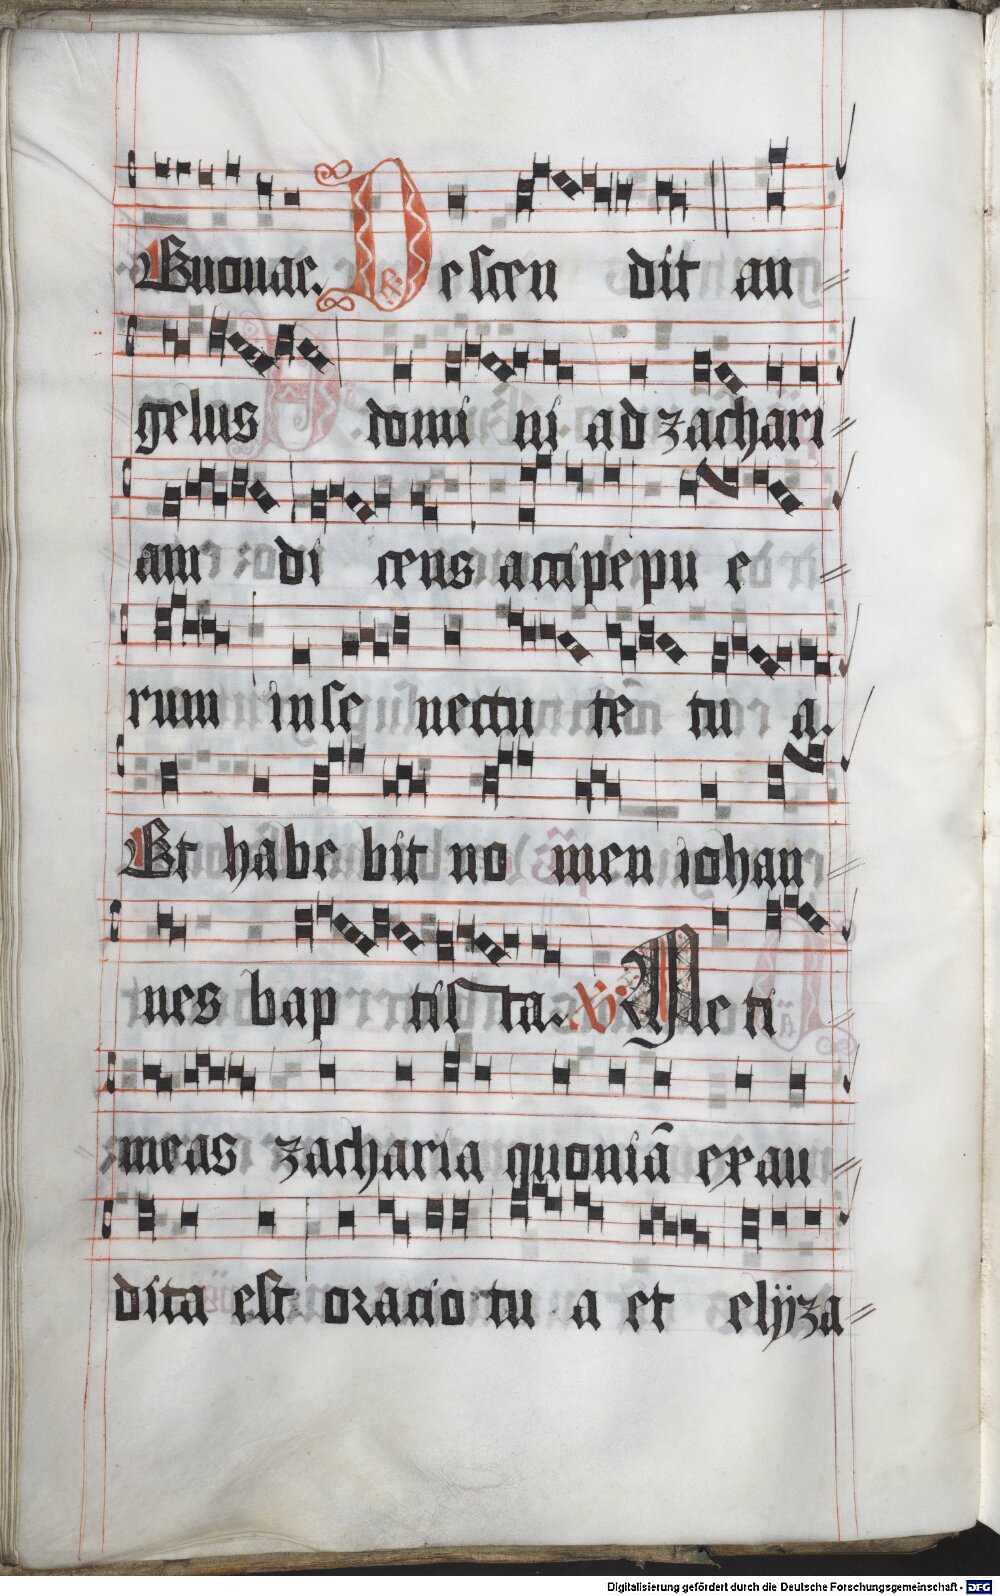 Euouae. Descen dit an
gelus domi ni ad zachari
am di cens accipe pu e
rum in se nectu te tu a.
Et habe bit no men iohan
nes bap tis ta. V Ne ti
meas zacharia quoniā exau
dita est oracio tu a et elÿza
Digitalisierung gefördert durch die Deutsche Forschungsgemeinschaft - DFG